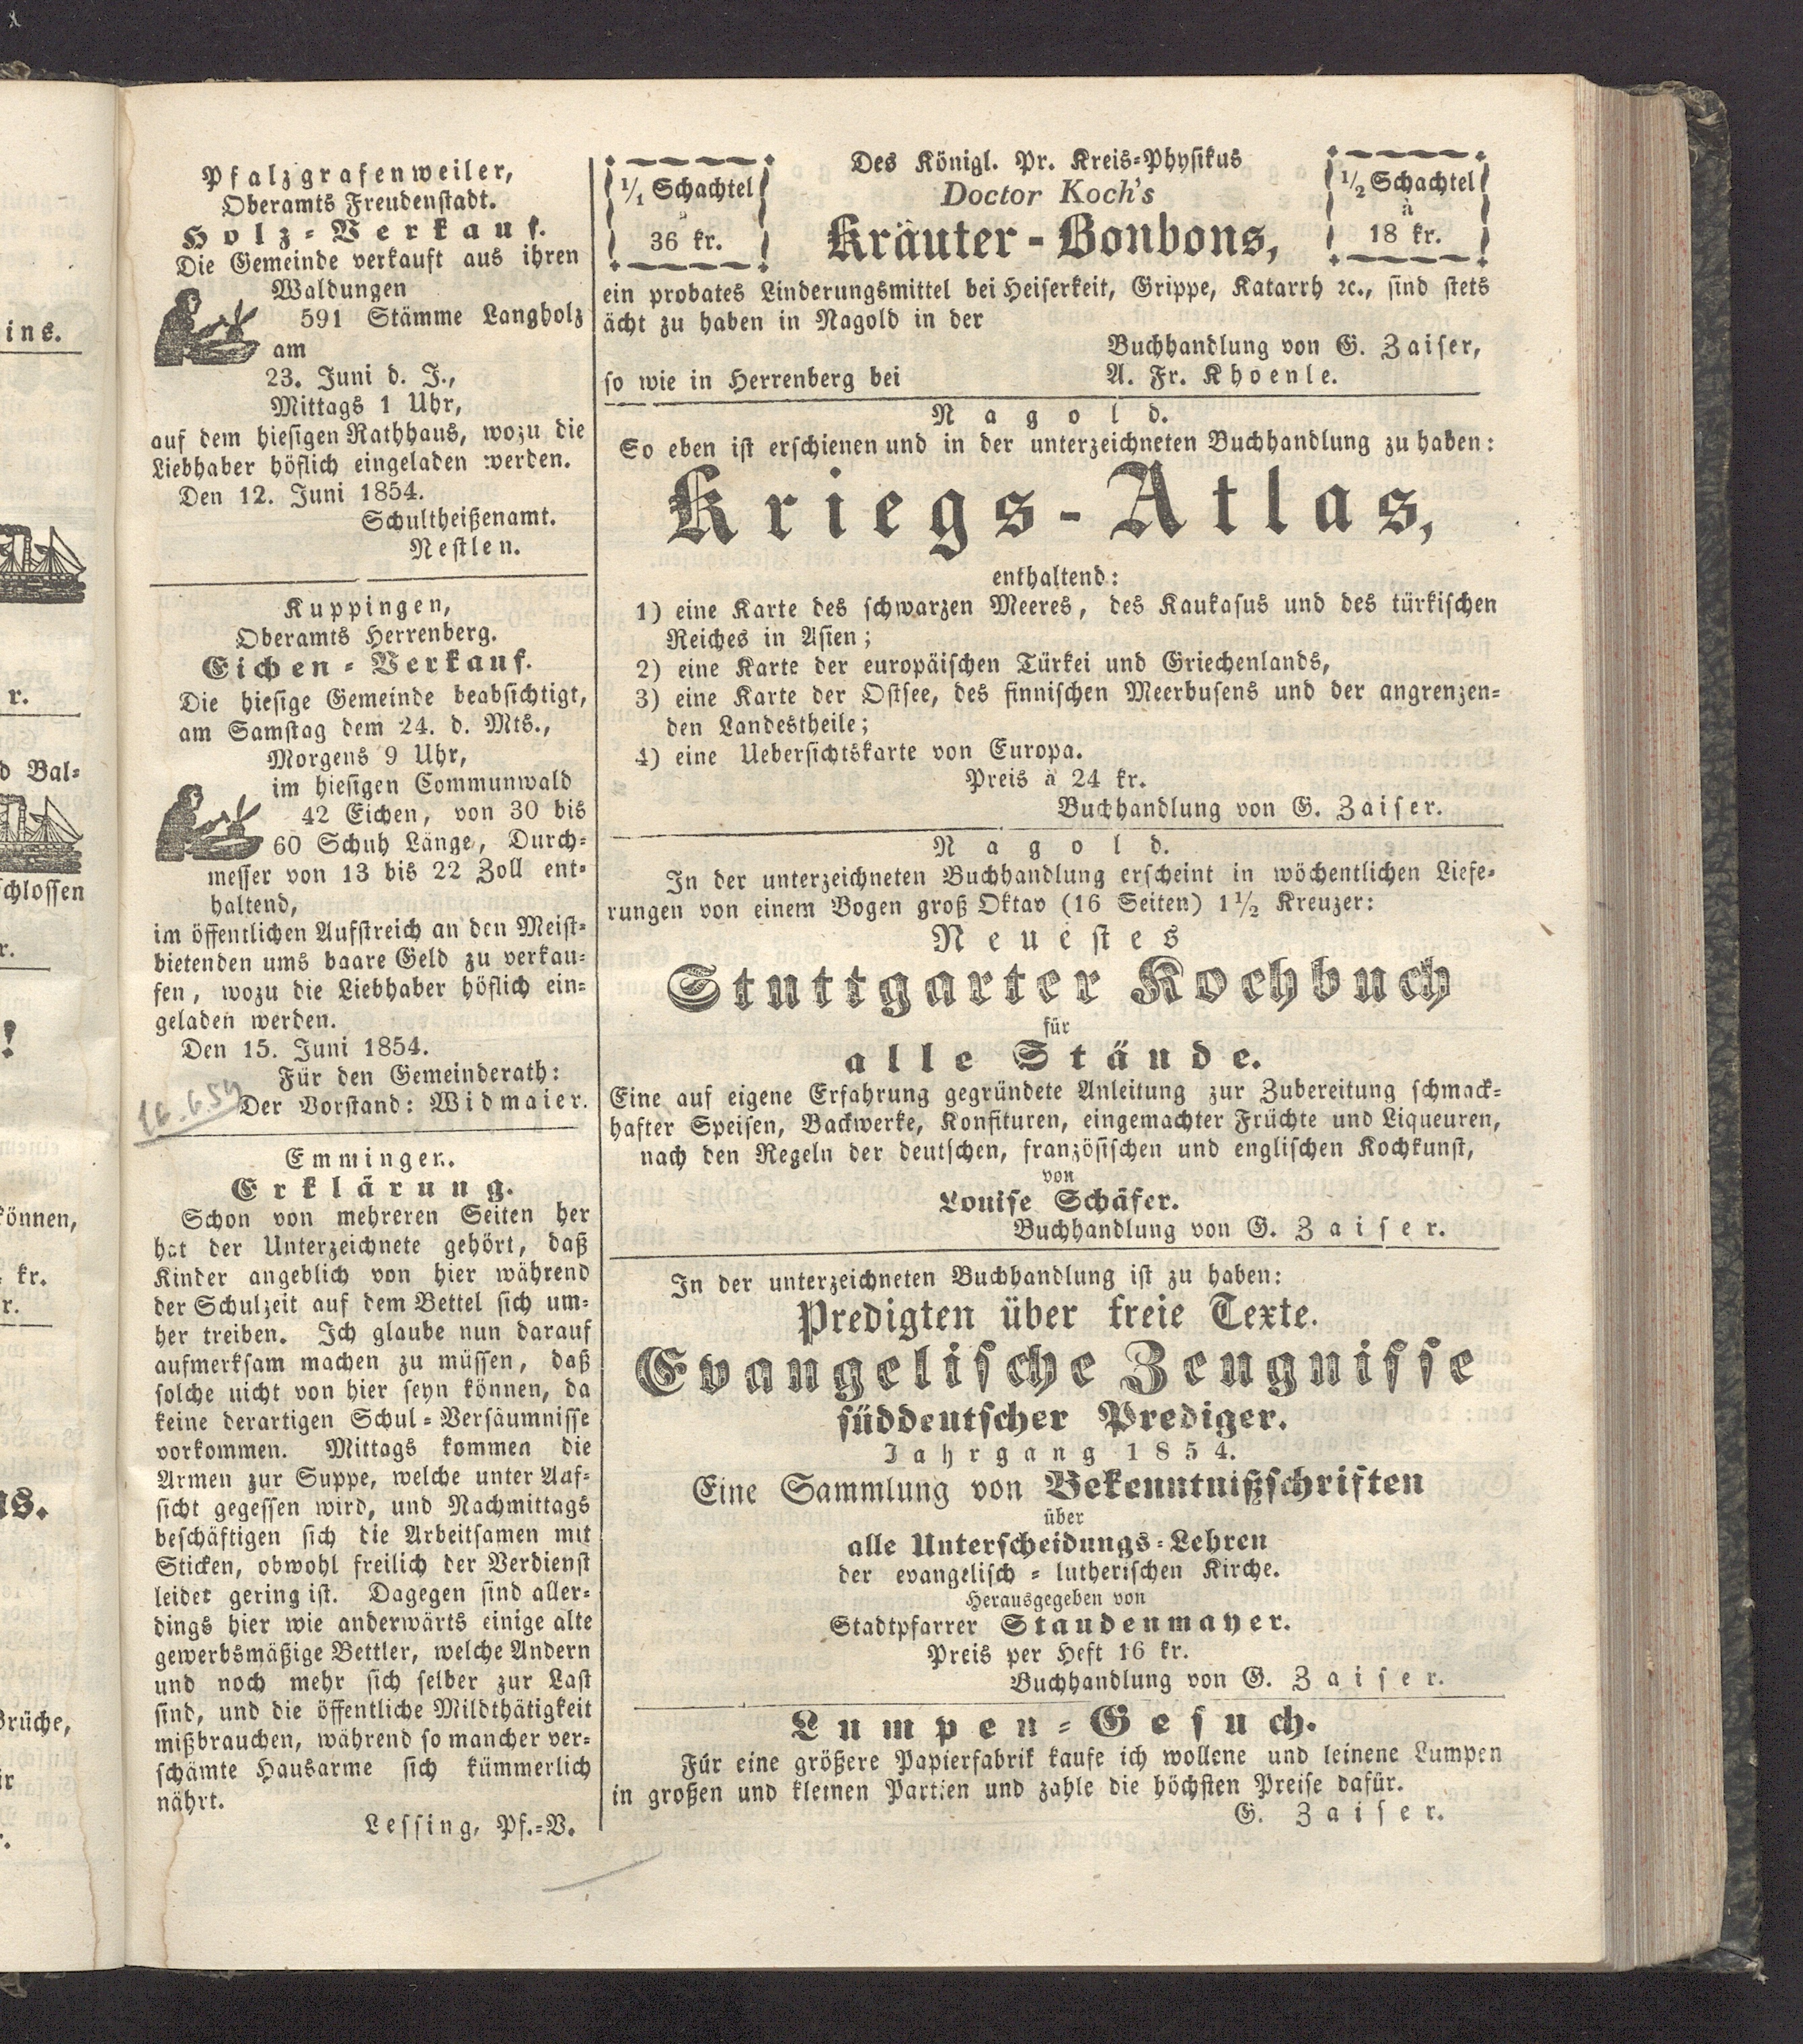 Pfalzgrafenweiler,
Oberamts Freudenstadt.
Holz-Verkauf.
Die Gemeinde verkauft aus ihren
Waldungen
591 Stämme Langholz
am
23. Juni d. J.,
Mittags 1 Uhr,
auf dem hiesigen Rathhaus, wozu die
Liebhaber höflich eingeladen werden.
Den 12. Juni 1854.
Schultheißenamt.
Nestlen.
Kuppingen,
Oberamts Herrenberg.
Eichen-Verkauf.
Die hiesige Gemeinde beabsichtigt,
am Samstag dem 24. d. Mts.,
Morgens 9 Uhr,
im hiesigen Communwald
42 Eichen, von 30 bis
60 Schuh Länge, Durch-
messer von 13 bis 22 Zoll ent-
haltend,
im öffentlichen Aufstreich an den Meist-
bietenden ums baare Geld zu verkau-
fen, wozu die Liebhaber höflich ein-
geladen werden.
Den 15. Juni 1854.
Für den Gemeinderath:
Der Vorstand: Widmaier.
16.6.54
Emminger.
Erklärung.
Schon von mehreren Seiten her
hat der Unterzeichnete gehört, daß
Kinder angeblich von hier während
der Schulzeit auf dem Bettel sich um-
her treiben. Ich glaube nun darauf
aufmerksam machen zu müssen, daß
solche nicht von hier seyn können, da
keine derartigen Schul-Versäumnisse
vorkommen. Mittags kommen die
Armen zur Suppe, welche unter Auf-
sicht gegessen wird, und Nachmittags
beschäftigen sich die Arbeitsamen mit
Sticken, obwohl freilich der Verdienst
leider gering ist. Dagegen sind aller-
dings hier wie anderwärts einige alte
gewerbsmäßige Bettler, welche Andern
und noch mehr sich selber zur Last
sind, und die öffentliche Mildthätigkeit
mißbrauchen, während so mancher ver-
schämte Hausarme sich kümmerlich
nährt.
Lessing, Pf.-V.
1/1 Schachtel
à
36 kr.
Des Königl. Pr. Kreis-Physikus
Doctor Koch's
Kräuter-Bonbons,
1/2 Schachtel
à
18 kr.
ein probates Linderungsmittel bei Heiserkeit, Grippe, Katarrh ꝛc., sind stets
ächt zu haben in Nagold in der
Buchhandlung von G. Zaiser,
so wie in Herrenberg bei A. Fr. Khoenle.
Nagold.
So eben ist erschienen und in der unterzeichneten Buchhandlung zu haben:
Kriegs-Atlas,
enthaltend:
1) eine Karte des schwarzen Meeres, des Kaukasus und des türkischen
Reiches in Asien;
2) eine Karte der europäischen Türkei und Griechenlands,
3) eine Karte der Ostsee, des finnischen Meerbusens und der angrenzen-
den Landestheile;
4) eine Uebersichtskarte von Europa.
Preis à 24 kr.
Buchhandlung von G. Zaiser.
Nagold.
In der unterzeichneten Buchhandlung erscheint in wöchentlichen Liefe-
rungen von einem Bogen groß Oktav (16 Seiten) 1 1/2 Kreuzer:
Neuestes
Stuttgarter Kochbuch
für
alle Stände.
Eine auf eigene Erfahrung gegründete Anleitung zur Zubereitung schmack-
hafter Speisen, Backwerke, Konfituren, eingemachter Früchte und Liqueuren,
nach den Regeln der deutschen, französischen und englischen Kochkunst,
von
Louise Schäfer.
Buchhandlung von G. Zaiser.
In der unterzeichneten Buchhandlung ist zu haben:
Predigten über freie Texte.
Evangelische Zeugnisse
süddeutscher Prediger.
Jahrgang 1854.
Eine Sammlung von Bekenntnißschriften
über
alle Unterscheidungs-Lehren
der evangelisch-lutherischen Kirche.
Herausgegeben von
Stadtpfarrer Staudenmayer.
Preis per Heft 16 kr.
Buchhandlung von G. Zaiser.
Lumpen-Gesuch.
Für eine größere Papierfabrik kaufe ich wollene und leinene Lumpen
in großen und kleinen Partien und zahle die höchsten Preise dafür.
G. Zaiser.